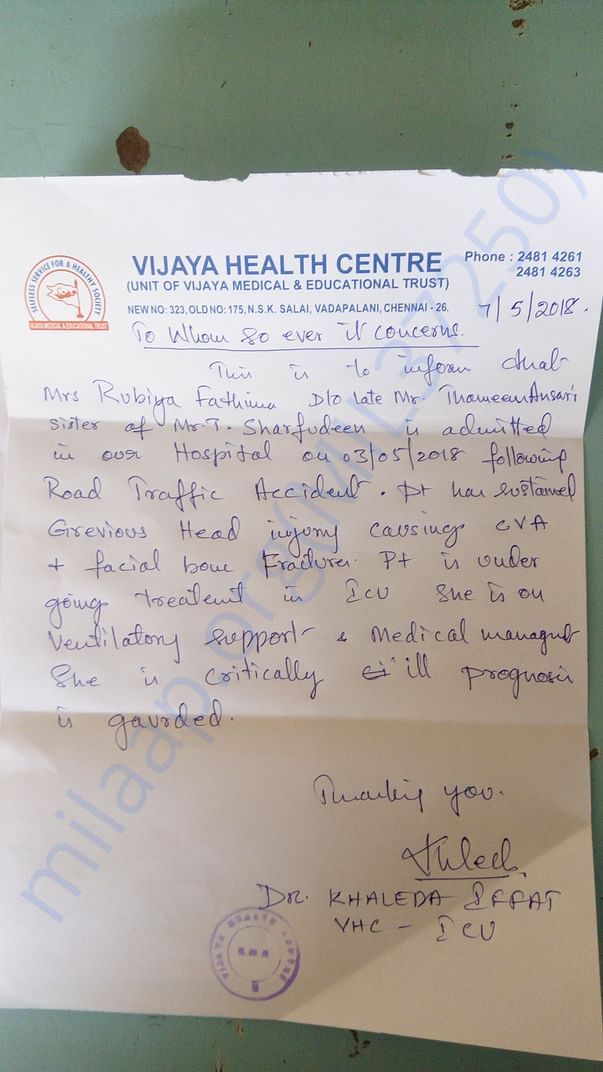 SELFLESS SERVICE FOR A HEALTHY SOCIETY
VIJAYA MEDICAL & EDUCATIONAL TRUST
VIJAYA HEALTH CENTRE
(UNIT OF VIJAYA MEDICAL & EDUCATIONAL TRUST)
NEW NO: 323, OLD NO: 175, N.S.K. SALAI, VADAPALANI, CHENNAI - 26.
Phone : 2481 4261
2481 4263
7/5/2018.
To Whom so ever it concerns.
This is to inform that
Mrs Rubiya Fathima D/o late Mr. Thameem Ansari
sister of Mr. T. Sharfudeen is admitted
in our Hospital on 03/05/2018 following
Road Traffic Accident. Pt has sustained
Grevious Head injury causing CVA
+ facial bone Fractures. Pt is under
going treatment in ICU She is on
Ventilatory support & Medical managmt
She is critically ill prognosis
is gaurded.
Thanking you.
Dr. KHALEDA IFFAT
VHC - ICU
VIJAYA HEALTH CENTRE
milaap.org